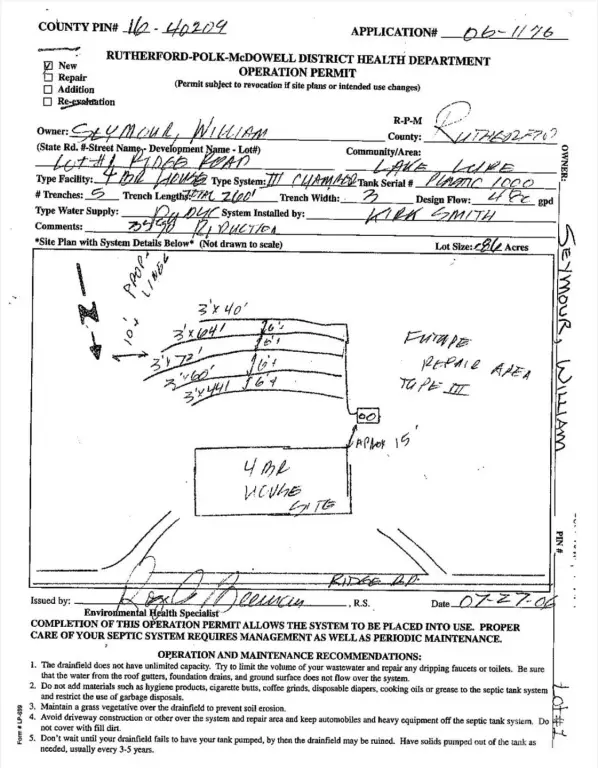 COUNTY PIN# 16-40209 APPLICATION# 06-1176
RUTHERFORD-POLK-McDOWELL DISTRICT HEALTH DEPARTMENT
OPERATION PERMIT
(Permit subject to revocation if site plans or intended use changes)
New
Repair
Addition
Re-evaluation
R-P-M
Owner: SEYMOUR, WILLIAM County: RUTHERFORD
(State Rd. #-Street Name- Development Name - Lot#) Community/Area:
LOT #1 RIDGE ROAD LAKE LURE
Type Facility: 4 BR HOUSE Type System: III CHAMBER Tank Serial # PLASTIC 1000
# Trenches: 5 Trench Length: 260' Trench Width: 3 Design Flow: 480 gpd
Type Water Supply: System Installed by: KIRK SMITH
Comments: REDUCTION
*Site Plan with System Details Below* (Not drawn to scale) Lot Size: .86 Acres
PROP LINES
10'±
3'x40'
3'x64'
3'x72'
3'x60'
3'x44'
6'±
6'±
6'±
6'±
FUTURE
REPAIR AREA
TYPE III
APROX 15'
4 BR
HOUSE
SITE
RIDGE RD.
Issued by: , R.S. Date 07-27-06
Environmental Health Specialist
COMPLETION OF THIS OPERATION PERMIT ALLOWS THE SYSTEM TO BE PLACED INTO USE. PROPER
CARE OF YOUR SEPTIC SYSTEM REQUIRES MANAGEMENT AS WELL AS PERIODIC MAINTENANCE.
OPERATION AND MAINTENANCE RECOMMENDATIONS:
1. The drainfield does not have unlimited capacity. Try to limit the volume of your wastewater and repair any dripping faucets or toilets. Be sure
that the water from the roof gutters, foundation drains, and ground surface does not flow over the system.
2. Do not add materials such as hygiene products, cigarette butts, coffee grinds, disposable diapers, cooking oils or grease to the septic tank system
and restrict the use of garbage disposals.
3. Maintain a grass vegetative over the drainfield to prevent soil erosion.
4. Avoid driveway construction or other over the system and repair area and keep automobiles and heavy equipment off the septic tank system. Do
not cover with fill dirt.
5. Don't wait until your drainfield fails to have your tank pumped, by then the drainfield may be ruined. Have solids pumped out of the tank as
needed, usually every 3-5 years.
Form # LP-059
OWNER: SEYMOUR, WILLIAM
PIN #
LOT #1